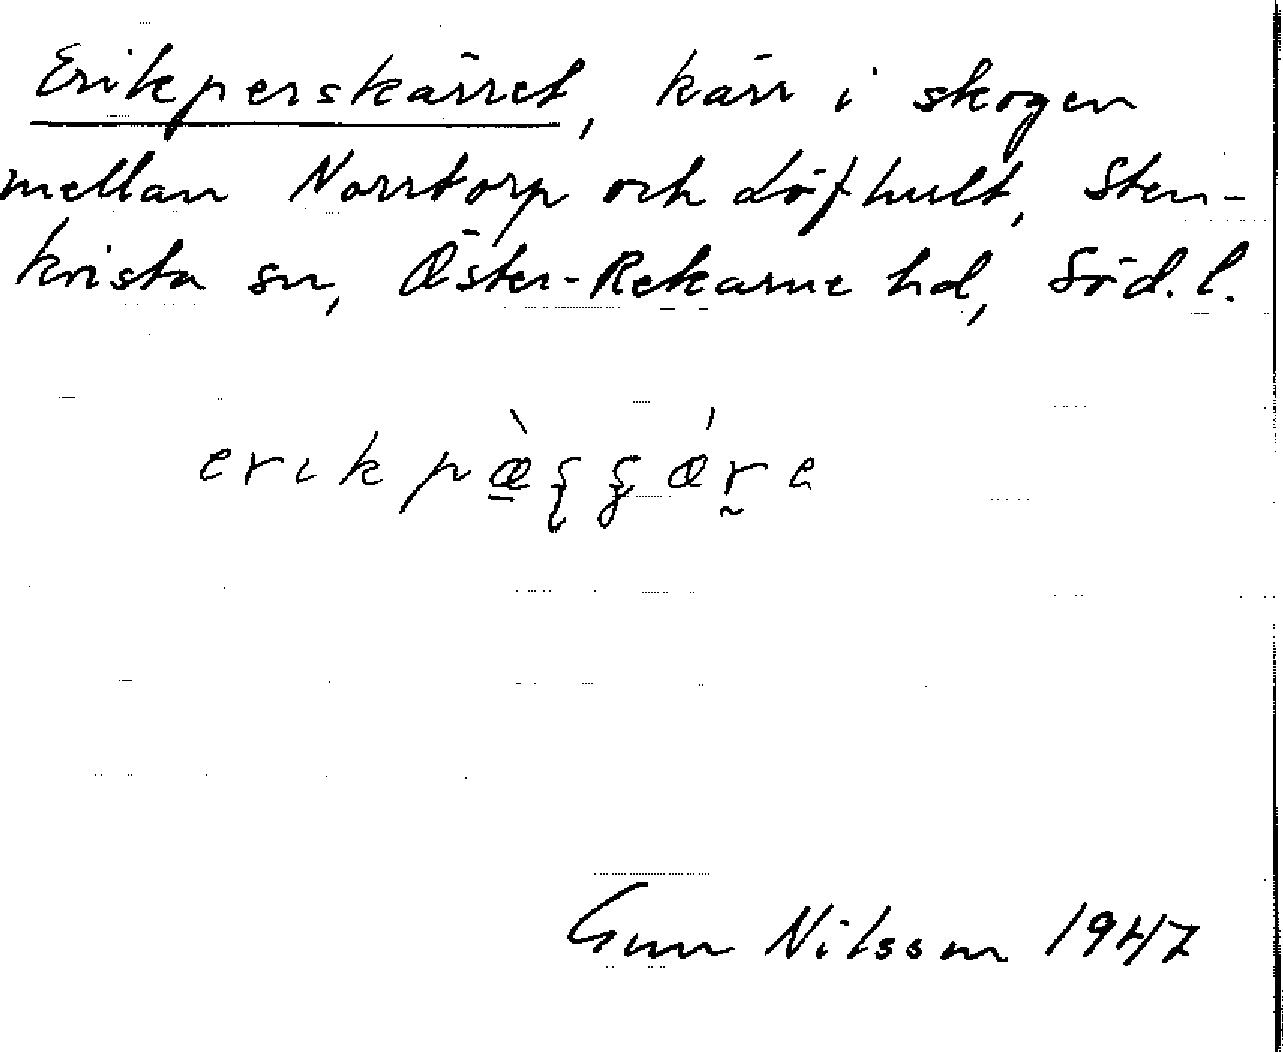 Erikperskärret, kärr i skogen
mellan Norrtorp och Löfhult, Sten-
kvista sn, Öster-Rekarne hd, Söd. l.
Gun Nilsson 1947